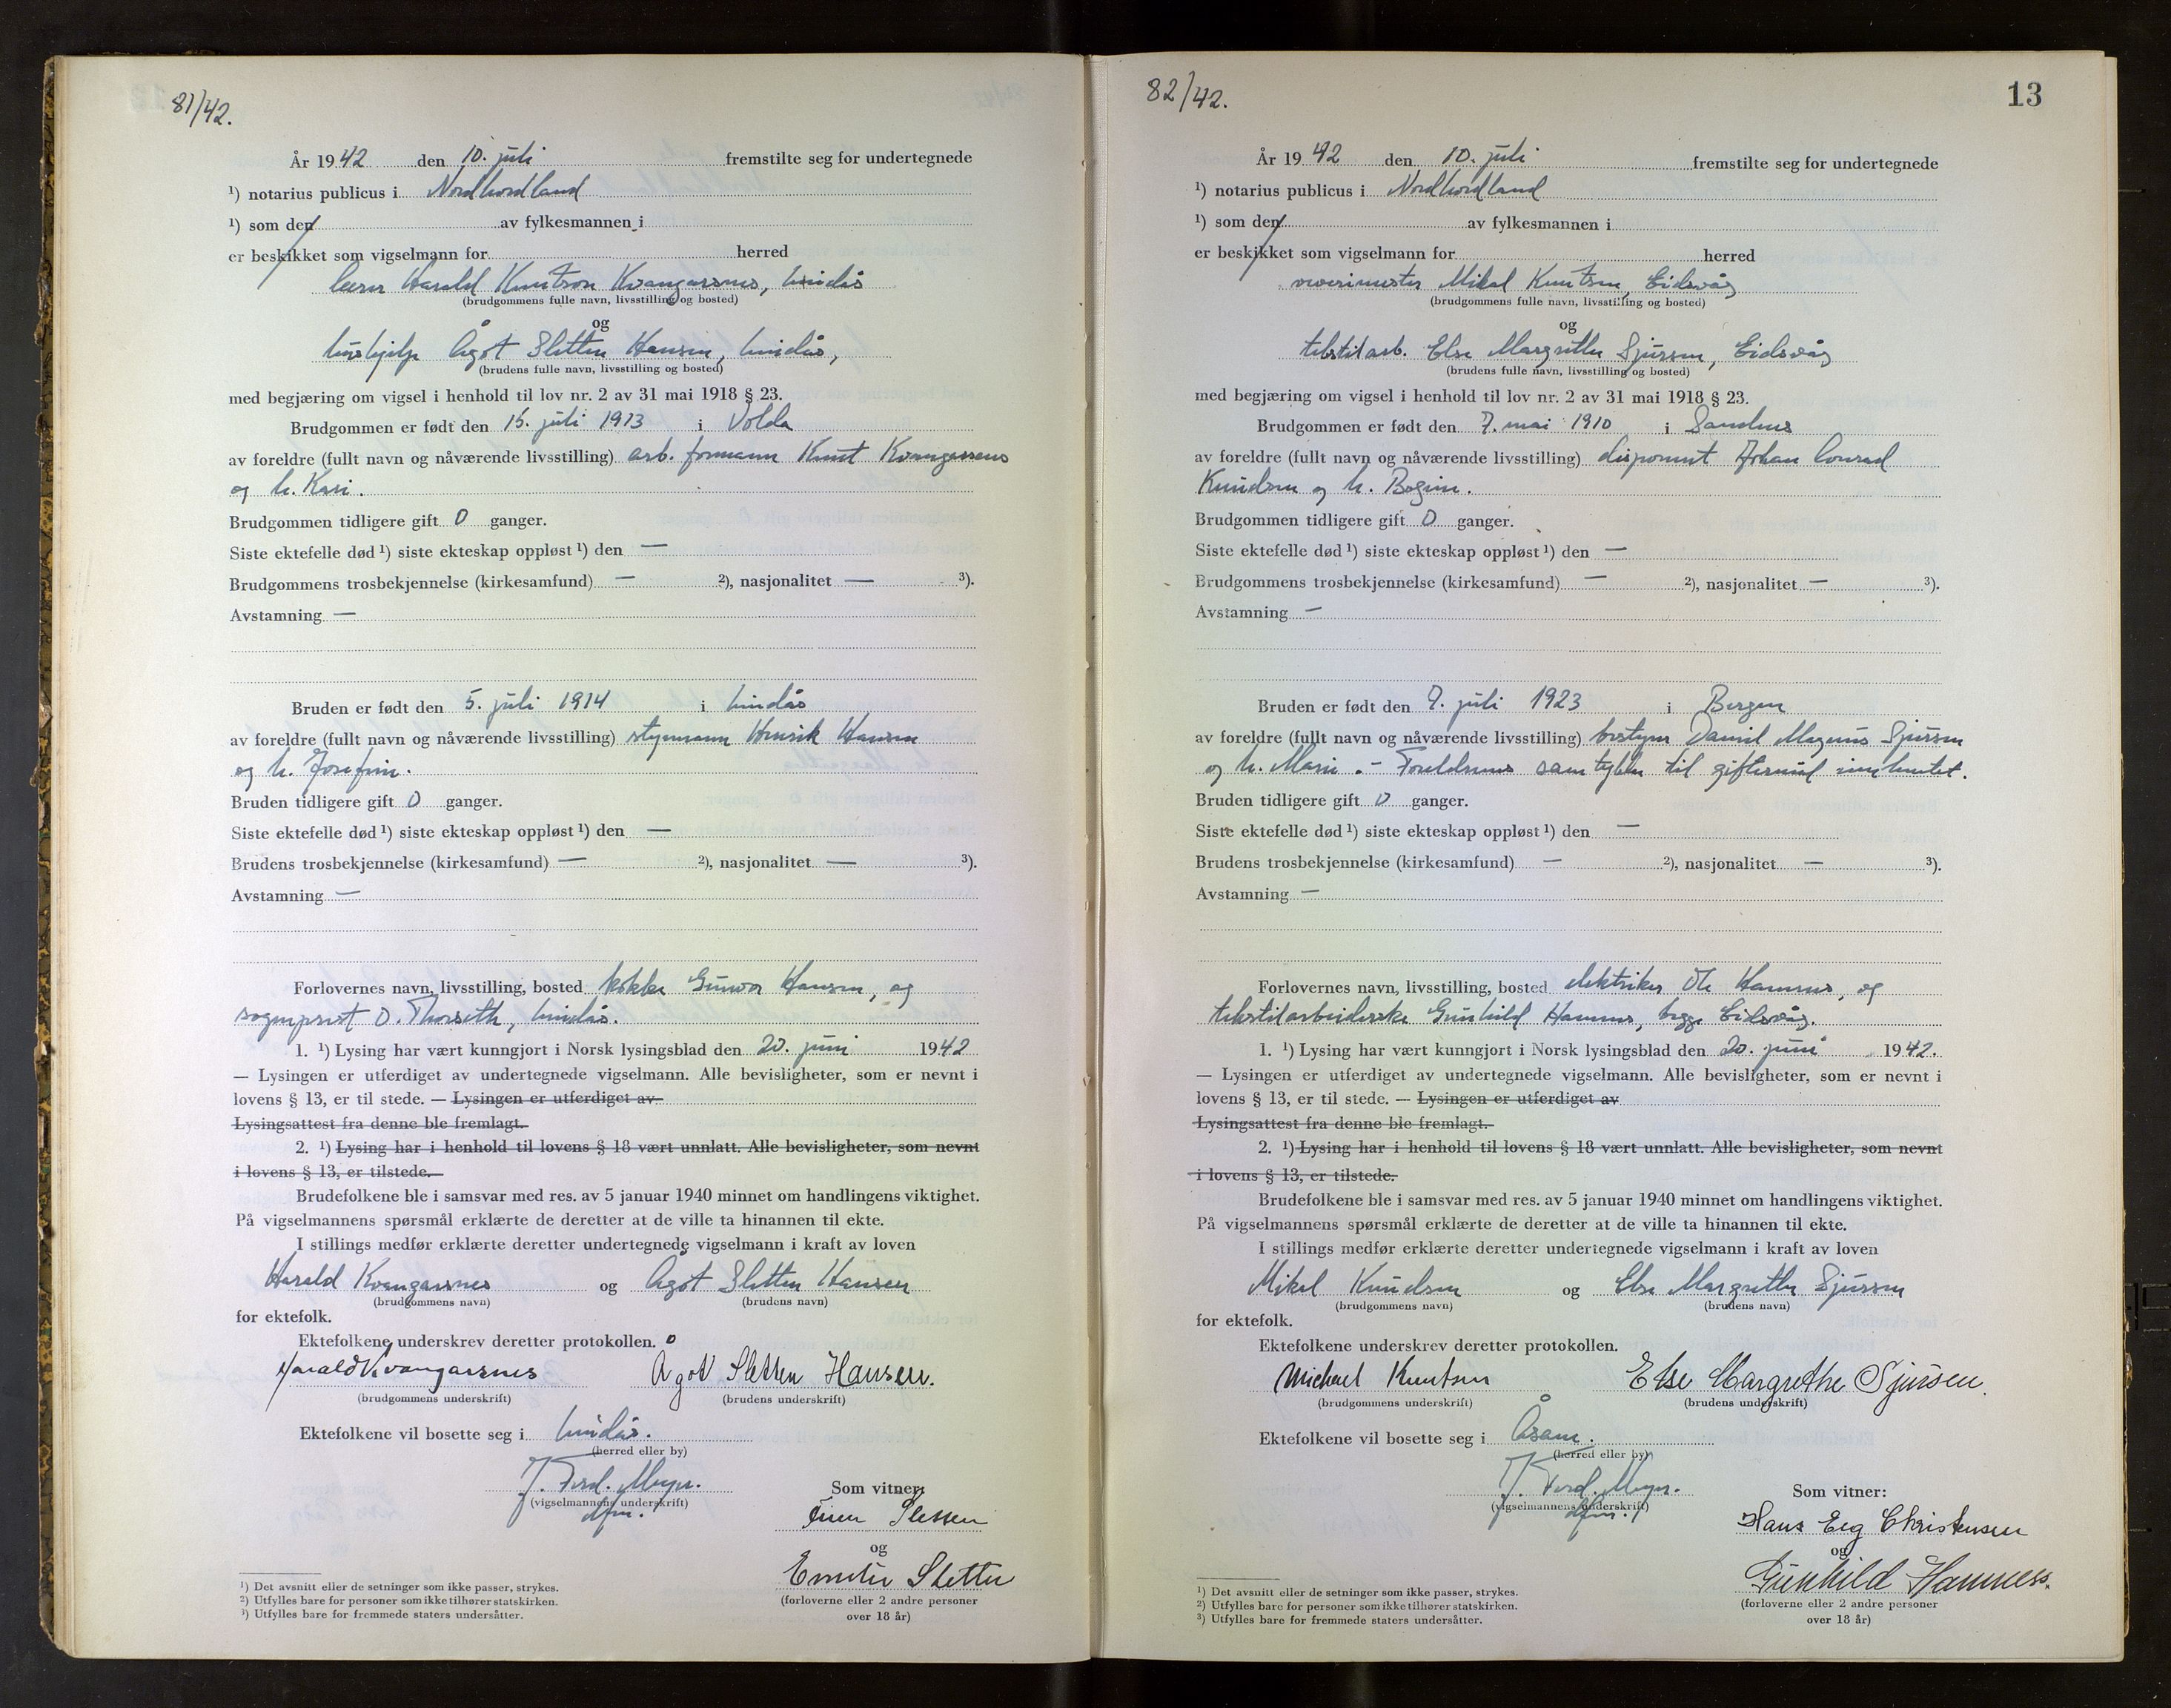 81/42.
År 1942 den 10. juli fremstilte seg for undertegnede
¹) notarius publicus i Nordhordland
¹) som den av fylkesmannen i
er beskikket som vigselmann for herred
lærer Harald Knutson Kvangarsnes, Lindås
(brudgommens fulle navn, livsstilling og bosted)
og
hushjelp Ågot Sletten Hansen, Lindås,
(brudens fulle navn, livsstilling og bosted)
med begjæring om vigsel i henhold til lov nr. 2 av 31 mai 1918 § 23.
Brudgommen er født den 15. juli 1913 i Volda
av foreldre (fullt navn og nåværende livsstilling) arb. formann Knut Kvangarsnes
og h. Kari.
Brudgommen tidligere gift 0 ganger.
Siste ektefelle død ¹) siste ekteskap oppløst ¹) den —
Brudgommens trosbekjennelse (kirkesamfund) — ²), nasjonalitet — ³).
Avstamning —
Bruden er født den 5. juli 1914 i Lindås
av foreldre (fullt navn og nåværende livsstilling) styrmann Henrik Hansen
og h. Josefine.
Bruden tidligere gift 0 ganger.
Siste ektefelle død ¹) siste ekteskap oppløst ¹) den —
Brudens trosbekjennelse (kirkesamfund) — ²), nasjonalitet — ³).
Avstamning —
Forlovernes navn, livsstilling, bosted kokke Gunvor Hansen, og
sogneprest O. Thorseth, Lindås.
1. ¹) Lysing har vært kunngjort i Norsk lysingsblad den 20. juni 1942
— Lysingen er utferdiget av undertegnede vigselmann. Alle bevisligheter, som er nevnt i
lovens § 13, er til stede. — Lysingen er utferdiget av
Lysingsattest fra denne ble fremlagt.
2. ¹) Lysing har i henhold til lovens § 18 vært unnlatt. Alle bevisligheter, som nevnt
i lovens § 13, er tilstede.
Brudefolkene ble i samsvar med res. av 5 januar 1940 minnet om handlingens viktighet.
På vigselmannens spørsmål erklærte de deretter at de ville ta hinannen til ekte.
I stillings medfør erklærte deretter undertegnede vigselmann i kraft av loven
Harald Kvangarsnes og Ågot Sletten Hansen
(brudgommens navn) (brudens navn)
for ektefolk.
Ektefolkene underskrev deretter protokollen.
Harald Kvangarsnes Ågot Sletten Hansen.
(brudgommens underskrift) (brudens underskrift)
Ektefolkene vil bosette seg i Lindås.
(herred eller by)
J. Ferd. Meyer.
(vigselmannens underskrift)
dfm.
Som vitner:
Sletten
og
Emilie Sletten
(forloverne eller 2 andre personer
over 18 år)
¹) Det avsnitt eller de setninger som ikke passer, strykes.
²) Utfylles bare for personer som ikke tilhører statskirken.
³) Utfylles bare for fremmede staters undersåtter.
82/42.
13
År 1942 den 10. juli fremstilte seg for undertegnede
¹) notarius publicus i Nordhordland
¹) som den av fylkesmannen i
er beskikket som vigselmann for herred
veverimester Mikal Knutsen, Eidsvåg
(brudgommens fulle navn, livsstilling og bosted)
og
tekstilarb. Else Margrethe Sjursen, Eidsvåg
(brudens fulle navn, livsstilling og bosted)
med begjæring om vigsel i henhold til lov nr. 2 av 31 mai 1918 § 23.
Brudgommen er født den 7. mai 1910 i Sandnes
av foreldre (fullt navn og nåværende livsstilling) disponent Johan Conrad
Knudsen og h. Bogine.
Brudgommen tidligere gift 0 ganger.
Siste ektefelle død ¹) siste ekteskap oppløst ¹) den —
Brudgommens trosbekjennelse (kirkesamfund) — ²), nasjonalitet — ³).
Avstamning —
Bruden er født den 7. juli 1923 i Bergen
av foreldre (fullt navn og nåværende livsstilling) bestyrer Daniel Magnus Sjursen
og h. Marie. - Foreldrenes samtykke til giftermål innhentet.
Bruden tidligere gift 0 ganger.
Siste ektefelle død ¹) siste ekteskap oppløst ¹) den —
Brudens trosbekjennelse (kirkesamfund) — ²), nasjonalitet — ³).
Avstamning —
Forlovernes navn, livsstilling, bosted elektriker Ole Hamnes, og
tekstilarbeiderske Gunhild Hamnes, begge Eidsvåg.
1. ¹) Lysing har vært kunngjort i Norsk lysingsblad den 20. juni 1942.
— Lysingen er utferdiget av undertegnede vigselmann. Alle bevisligheter, som er nevnt i
lovens § 13, er til stede. — Lysingen er utferdiget av
Lysingsattest fra denne ble fremlagt.
2. ¹) Lysing har i henhold til lovens § 18 vært unnlatt. Alle bevisligheter, som nevnt
i lovens § 13, er tilstede.
Brudefolkene ble i samsvar med res. av 5 januar 1940 minnet om handlingens viktighet.
På vigselmannens spørsmål erklærte de deretter at de ville ta hinannen til ekte.
I stillings medfør erklærte deretter undertegnede vigselmann i kraft av loven
Mikal Knudsen og Else Margrethe Sjursen
(brudgommens navn) (brudens navn)
for ektefolk.
Ektefolkene underskrev deretter protokollen.
Michael Knutsen Else Margrethe Sjursen.
(brudgommens underskrift) (brudens underskrift)
Ektefolkene vil bosette seg i Åsane.
(herred eller by)
J. Ferd. Meyer.
(vigselmannens underskrift)
dfm.
Som vitner:
Hans Eeg Christensen
og
Gunhild Hamnes.
(forloverne eller 2 andre personer
over 18 år)
¹) Det avsnitt eller de setninger som ikke passer, strykes.
²) Utfylles bare for personer som ikke tilhører statskirken.
³) Utfylles bare for fremmede staters undersåtter.